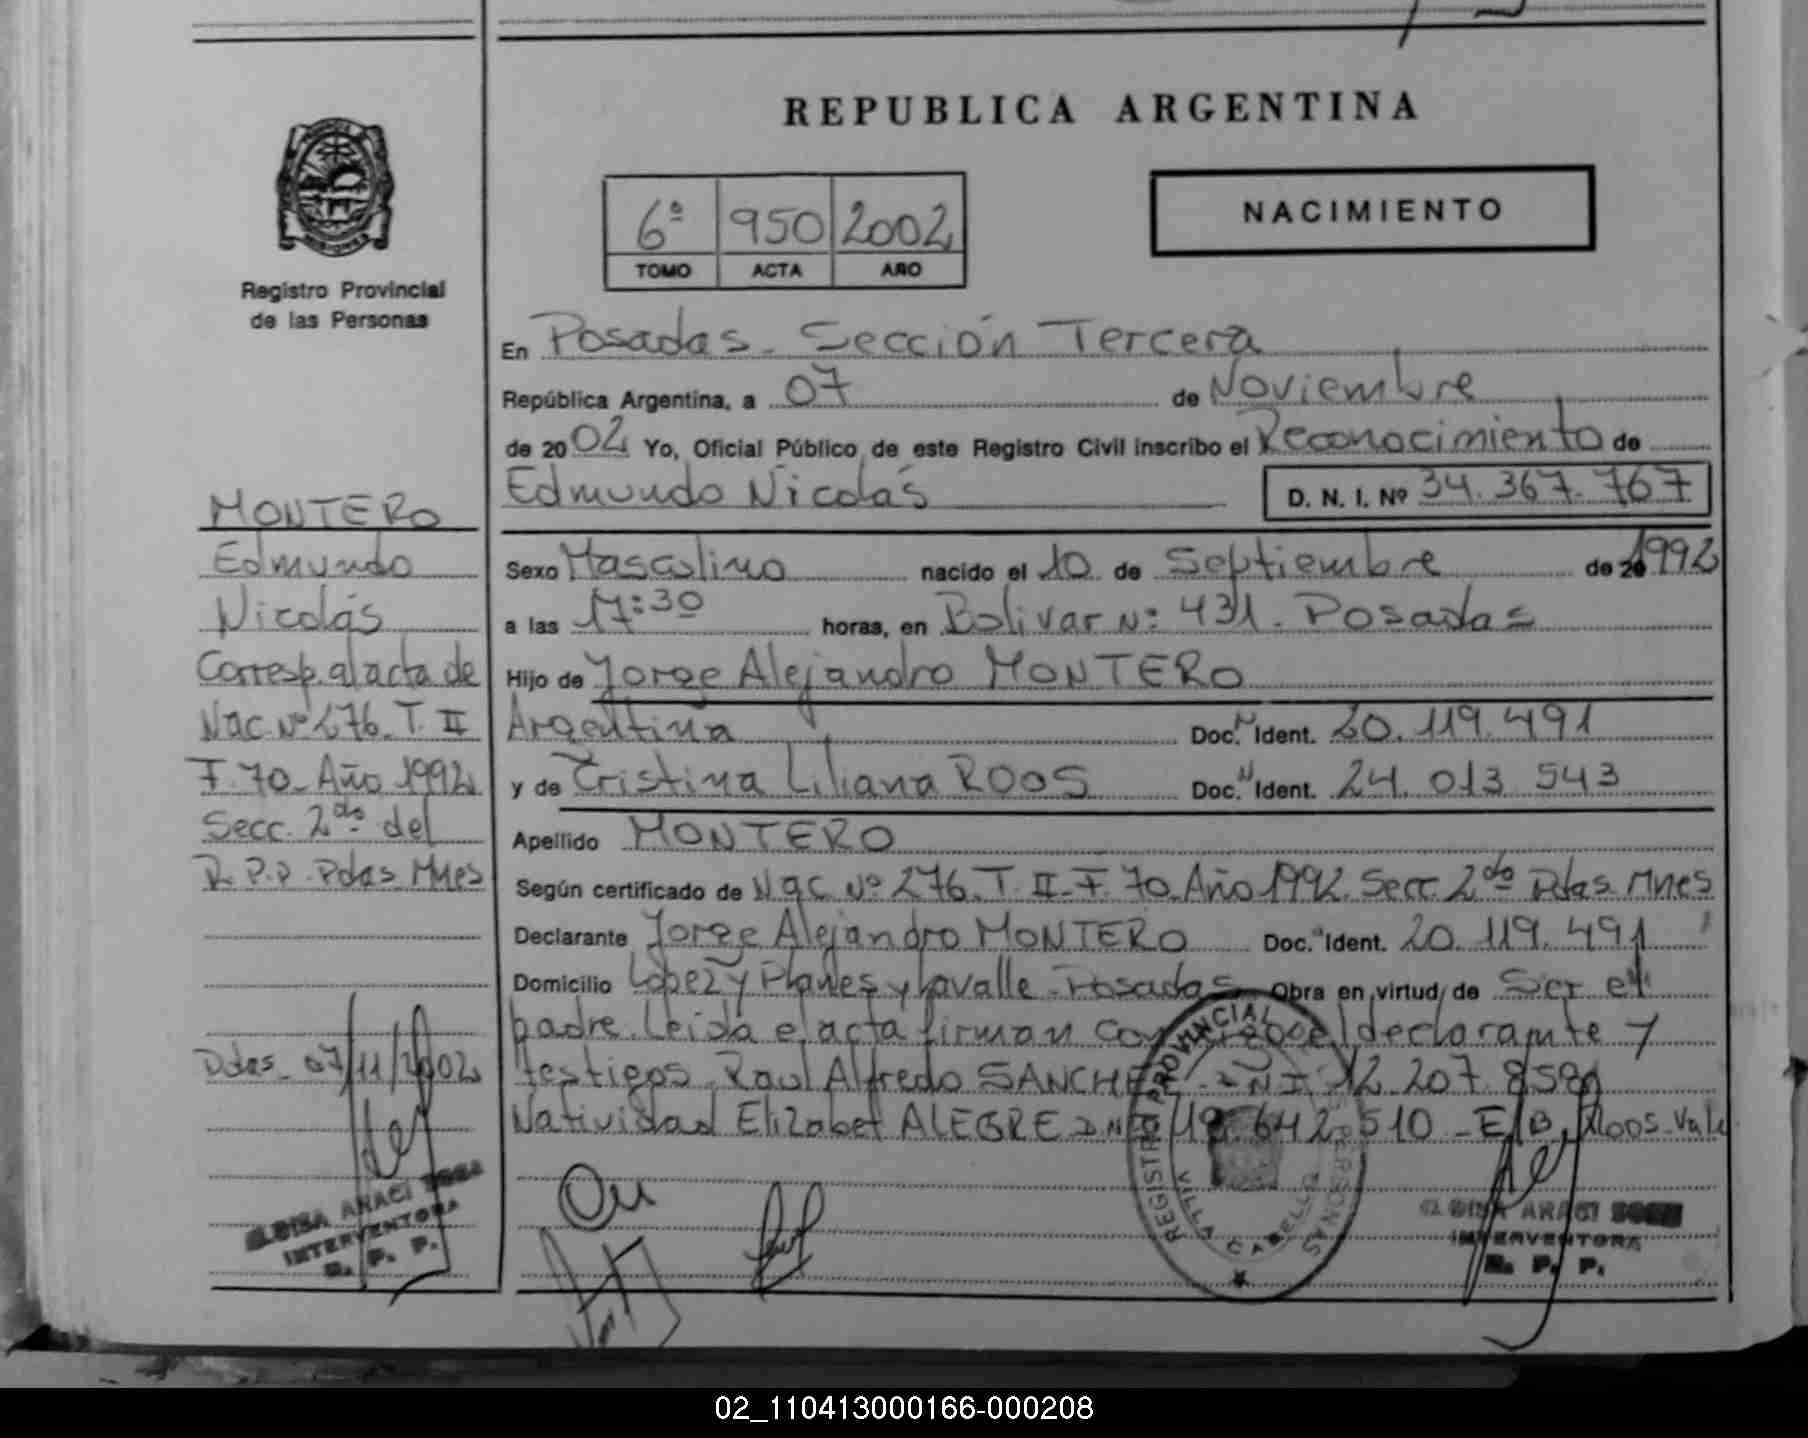 REPUBLICA ARGENTINA
6ª 950 2002
TOMO ACTA AÑO
NACIMIENTO
Registro Provincial
de las Personas
En Posadas. Sección Tercera
República Argentina, a 07 de Noviembre
de 2002 Yo, Oficial Público de este Registro Civil inscribo el Reconocimiento de
Edmundo Nicolás D. N. I. Nº 34.367.767
Sexo Masculino nacido el 10 de Septiembre de 1992
a las 17:30 horas, en Bolivar Nº 431. Posadas
Hijo de Jorge Alejandro MONTERO
Argentina Doc. N Ident. 20.119.491
y de Cristina Liliana ROOS Doc. N Ident. 24.013.543
Apellido MONTERO
Según certificado de Nac Nº 276. T. II - F. 70. Año 1992. Secc. 2do Pdas. Mnes
Declarante Jorge Alejandro MONTERO Doc. Ident. 20.119.491
Domicilio Lopez y Planes y Lavalle - Posadas Obra en virtud de Ser el
padre. Leida el acta firman declarante y
testigos Raul Alfredo SANCHEZ 12.207.
Natividad Elizabet ALEGRE DNI 642.510 - E/B. Roos. Vale
MONTERO
Edmundo
Nicolás
Corresp. al acta de
Nac Nº 276. T. II
F. 70. Año 1992
Secc. 2do del
R. P. P. Pdas Mnes
Pdas. 07/11/2002
ARACI
INTERVENTORA
R. P. P.
REGISTRO PROVINCIAL PERSONAS
VILLA CABELLO
ARACI
INTERVENTORA
R. P. P.
02_110413000166-000208